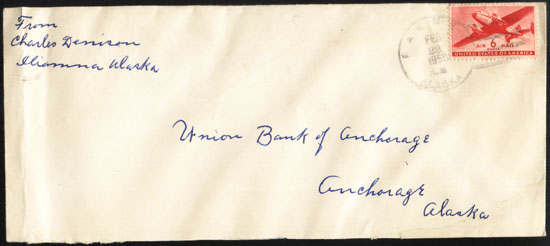 From
Charles Denison
Iliamna Alaska
FEB
AIR 6¢ MAIL
UNITED STATES OF AMERICA
A.M.
ALASKA
Union Bank of Anchorage
Anchorage
Alaska